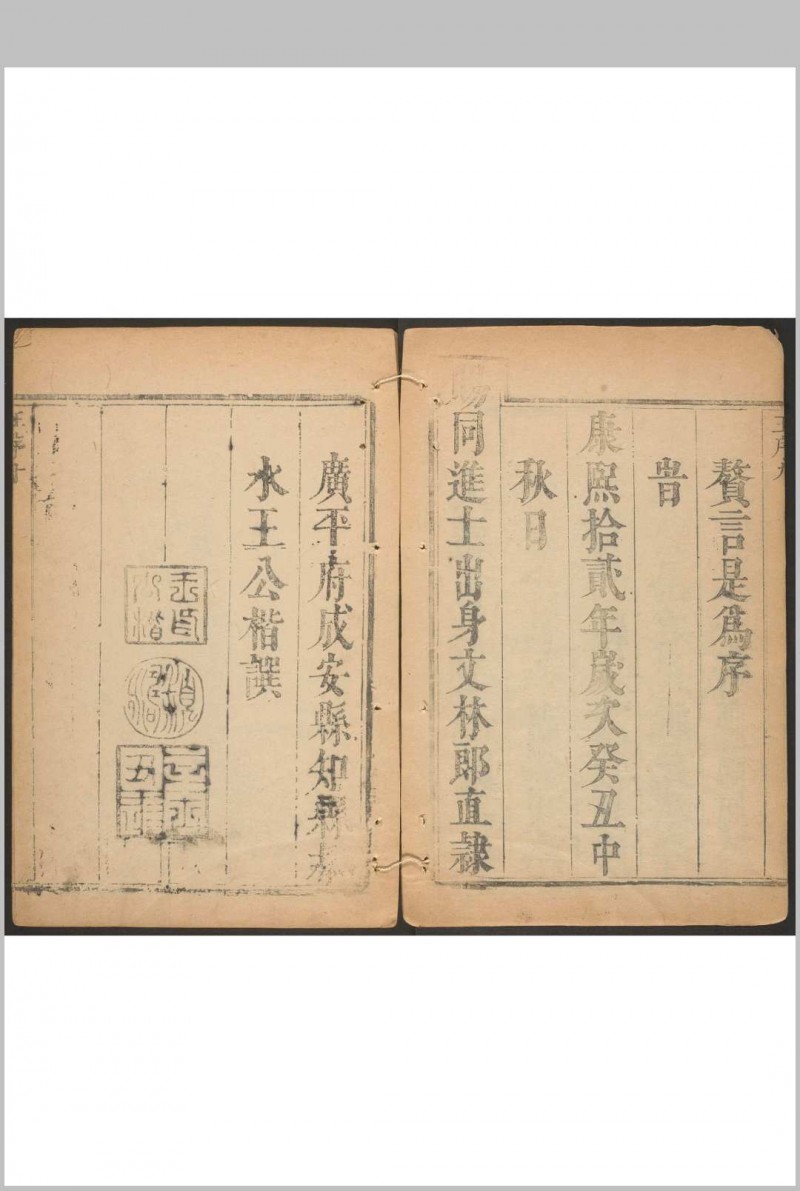 贅言是爲序
旹
康熙拾貳年歲次癸丑中
秋日
賜同進士出身文林郎直隷
廣平府成安縣知縣
水王公楷譔